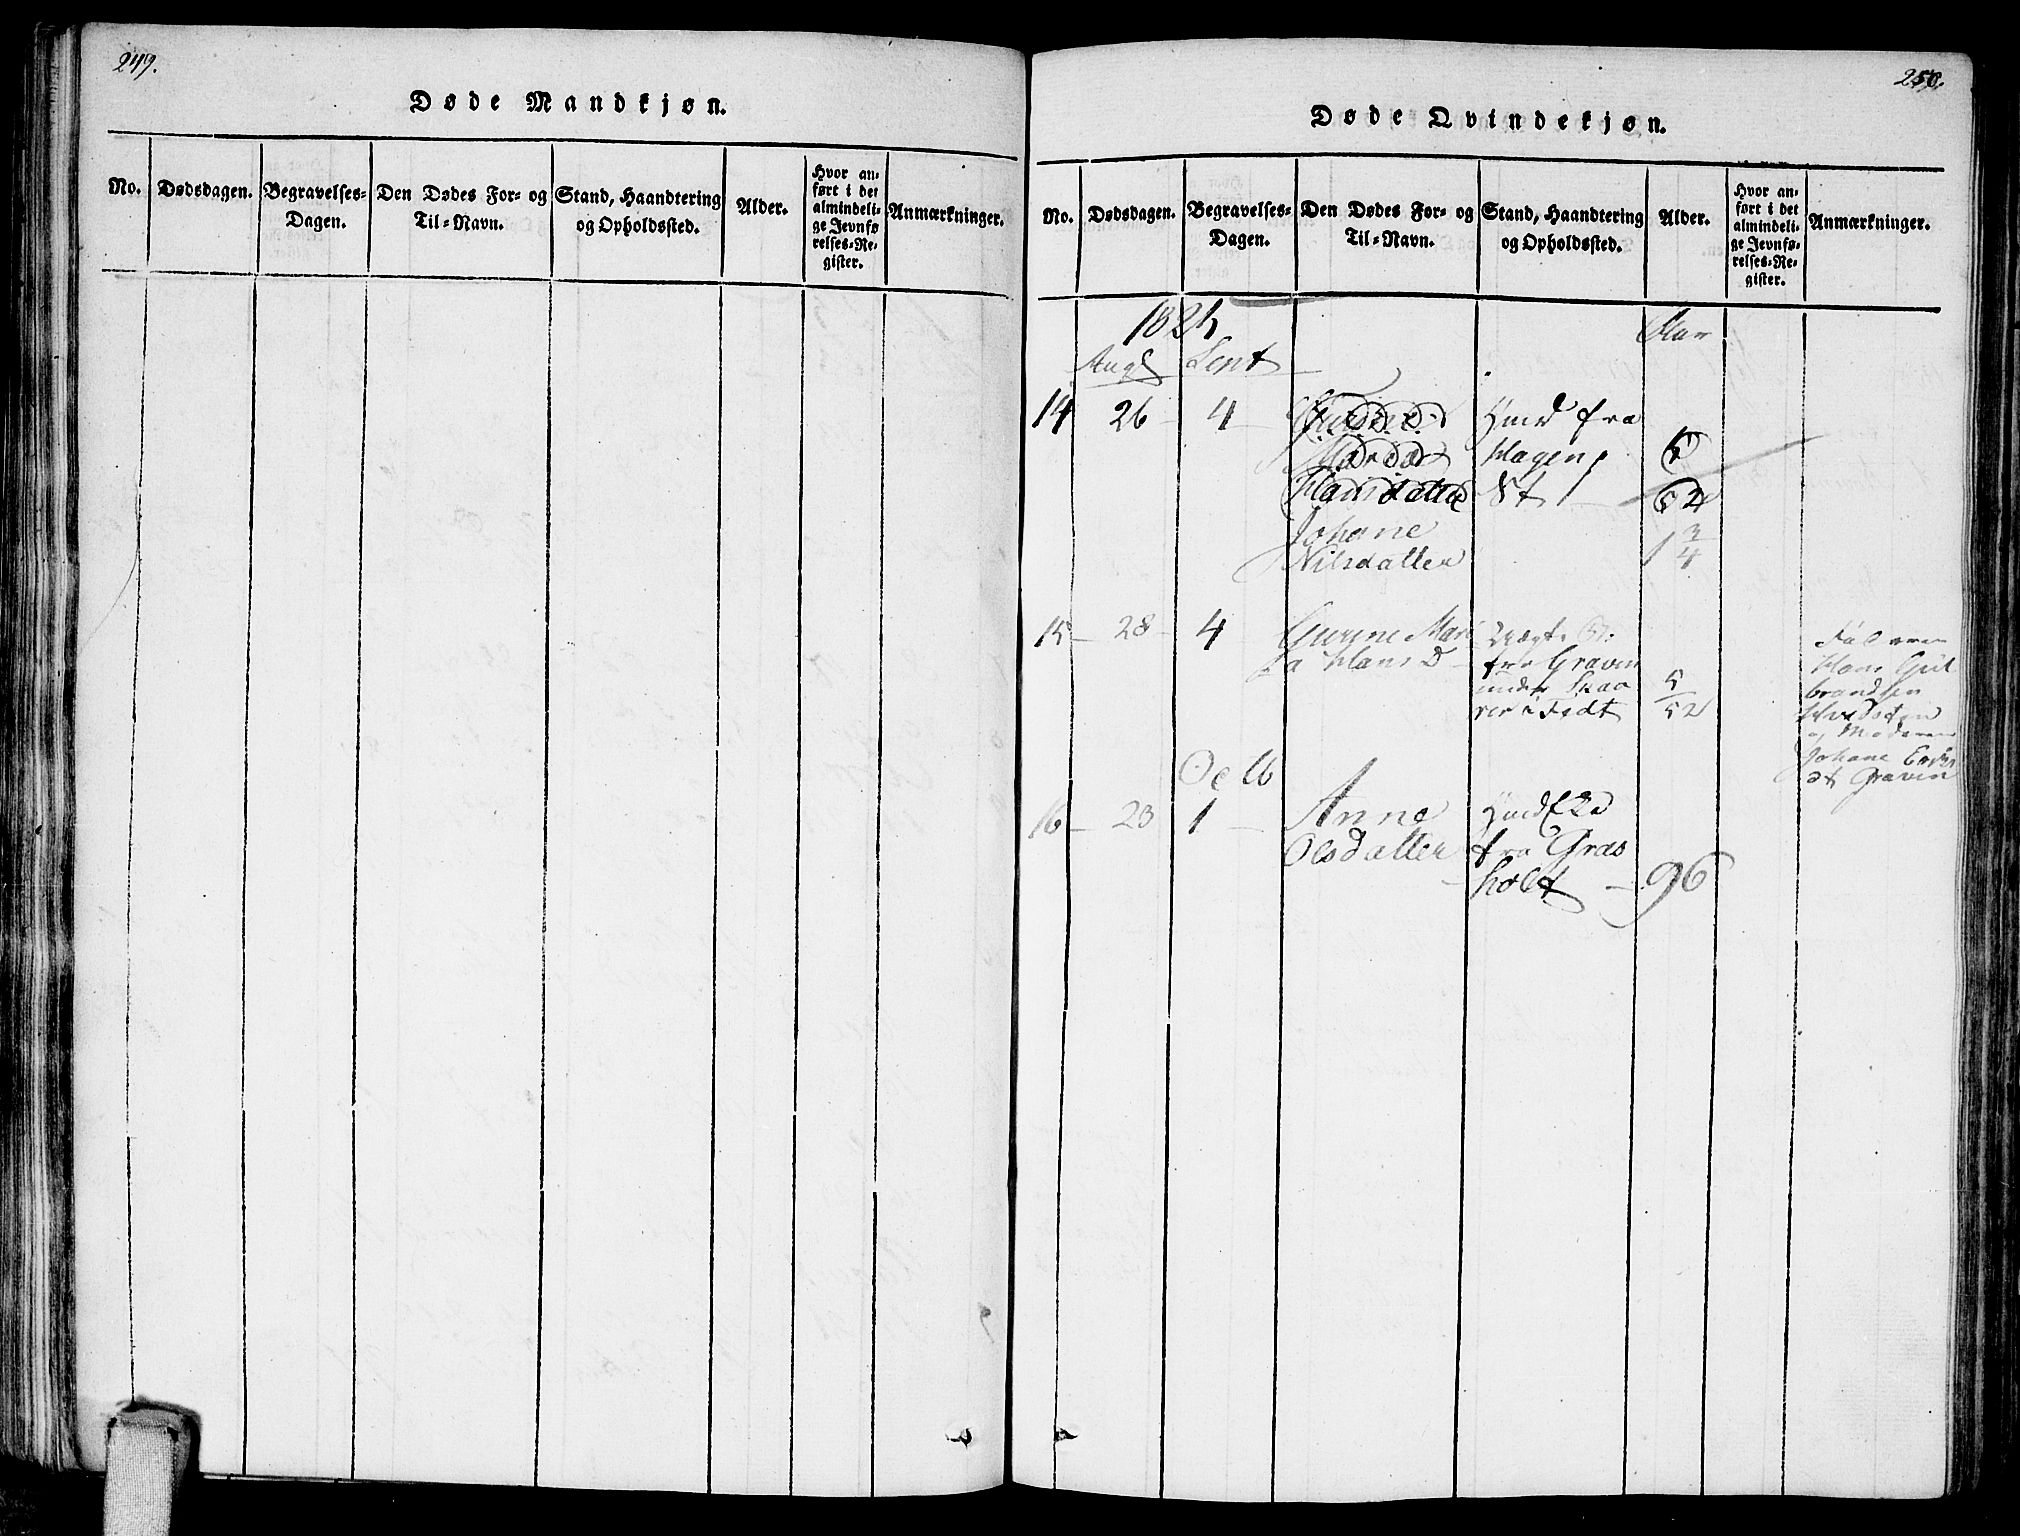 249.
Døde Mandkjøn.
No.
Dødsdagen.
Begravelses-
Dagen.
Den Dødes For- og
Til-Navn.
Stand, Haandtering
og Opholdssted.
Alder.
Hvor an-
ført i det
almindeli-
ge Jevnfø-
relses-Re-
gister.
Anmærkninger.
250.
Døde Qvindekjøn.
No.
Dødsdagen.
Begravelses-
Dagen.
Den Dødes For- og
Til-Navn.
Stand, Haandtering
og Opholdssted.
Alder.
Hvor an-
ført i det
almindeli-
ge Jevnfø-
relses-Re-
gister.
Anmærkninger.
1825
Aar
Augs Sept
14 26 4
Hansdatter
Johane
Nilsdatter
fra
Hagen
5
52
1 3/4
15 28 4
Gurine Mari
a Hans D
fra Graven
under Skaa
rer i Fedt
5/52
Faderen
Hans Gul
brandsen
Hvidsten
og Moderen
Johane
Graven
16 23
Octb
1
Anne
Olsdatter
fra Græs
holt
96